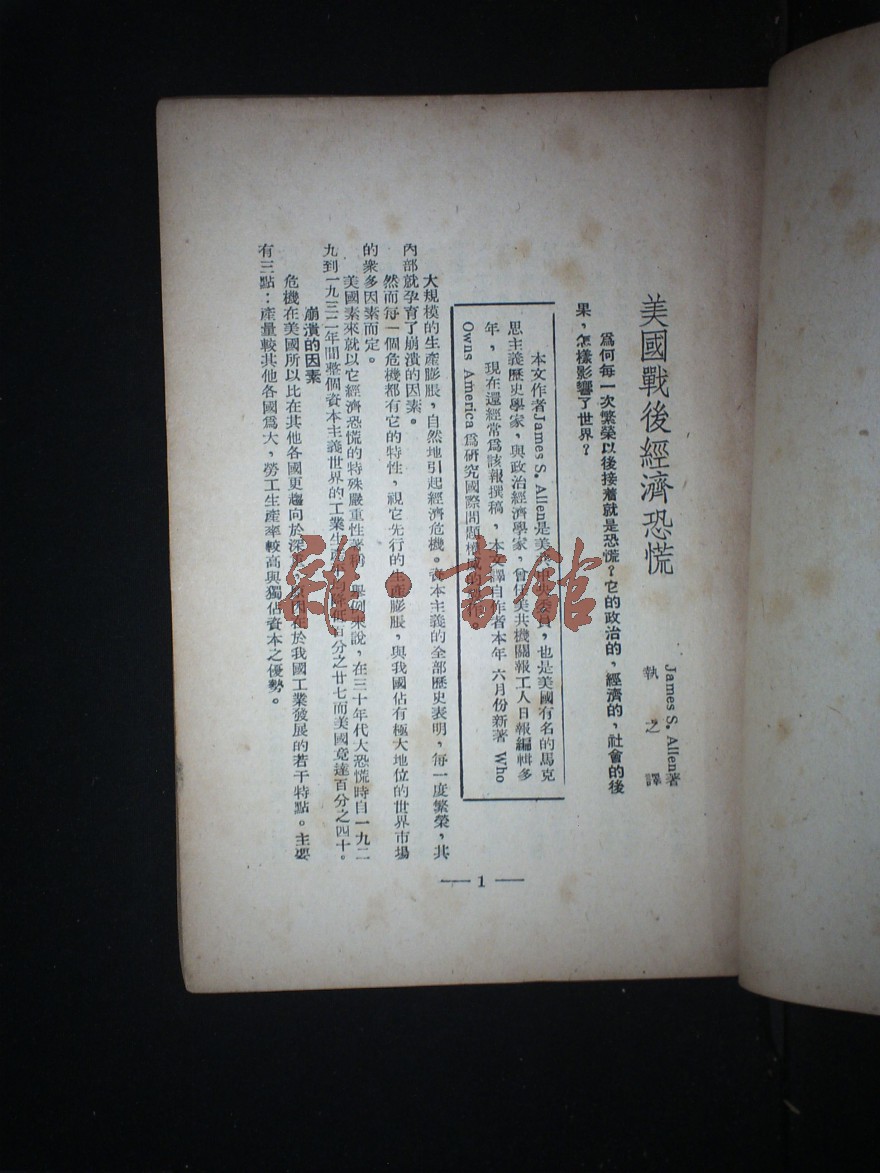 美國戰後經濟恐慌
James S. Allen著
執之譯
爲何每一次繁榮以後接着就是恐慌？它的政治的，經濟的，社會的後
果，怎樣影響了世界？
本文作者James S. Allen是美共中央委員，也是美國有名的馬克
思主義歷史學家，與政治經濟學家，曾任美共機關報工人日報編輯多
年，現在還經常爲該報撰稿，本文譯自作者本年六月份新著 Who
Owns America 爲研究國際問題權威的
大規模的生產膨脹，自然地引起經濟危機。資本主義的全部歷史表明，每一度繁榮，其
內部就孕育了崩潰的因素。
然而每一個危機都有它的特性，視它先行的生產膨脹，與我國佔有極大地位的世界市場
的衆多因素而定。
美國素來就以它經濟恐慌的特殊嚴重性著稱，舉例來說，在三十年代大恐慌時自一九二
九到一九三二年間整個資本主義世界的工業生產降低百分之廿七而美國竟達百分之四十。
崩潰的因素
危機在美國所以比在其他各國更趨向於深在於我國工業發展的若干特點。主要
有三點：產量較其他各國爲大，勞工生產率較高與獨佔資本之優勢。
— 1 —
雜·書館